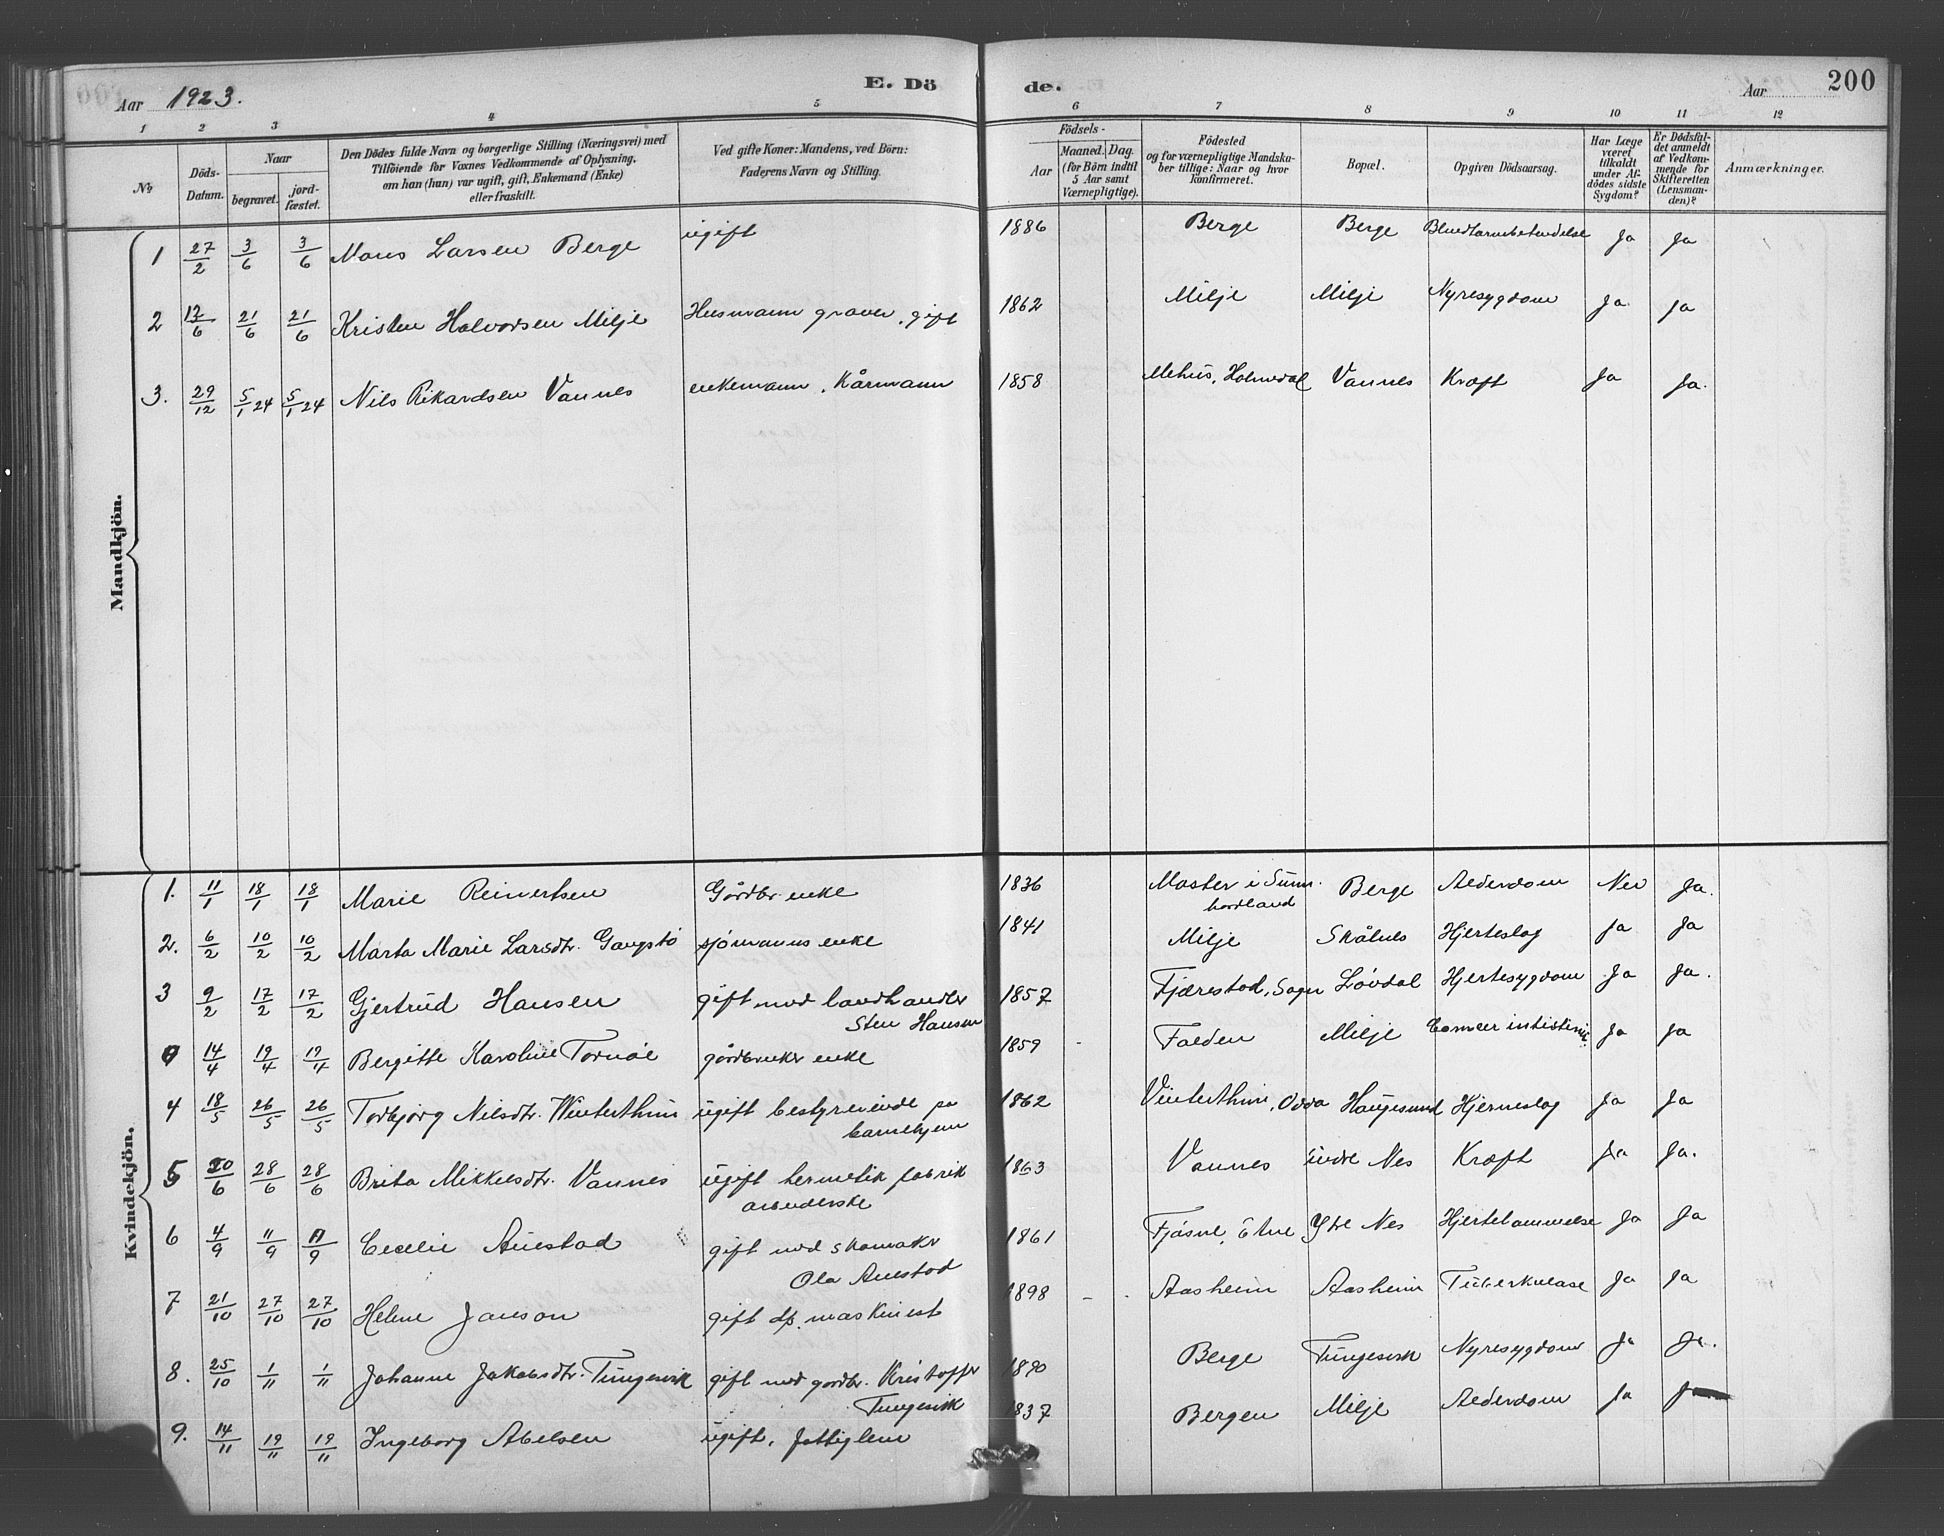 Aar 1923. E. Dö
de. Aar 200
1 2 3 4 5 6 7 8 9 10 11 12
No
Döds-Datum.
Naar
begravet.
jord-fæstet.
Den Dödes fulde Navn og borgerlige Stilling (Næringsvei) med
Tilföiende for Voxnes Vedkommende af Oplysning,
om han (hun) var ugift, gift, Enkemand (Enke)
eller fraskilt.
Ved gifte Koner: Mandens, ved Börn:
Faderens Navn og Stilling.
Födsels-
Aar
Maaned. Dag.
(for Börn indtil
5 Aar samt
Værnepligtige).
Födested
og for værnepligtige Mandska-
ber tillige: Naar og hvor
konfirmeret.
Bopæl.
Opgiven Dödsaarsag.
Har Læge
været
tilkaldt
under Af-
dödes sidste
Sygdom?
Er Dödsfal-
det anmeldt
af Vedkom-
mende for
Skifteretten
(Lensman-
den)?
Anmærkninger.
Mandkjön.
1 27/2 3/6 3/6 Mons Larsen Berge ugift 1886 Berge Berge Ja Ja
2 17/6 21/6 21/6 Kristen Halvorsen Milje Husmann graver, gift 1862 Milje Milje Nyresygdom Ja Ja
3. 29/12 5/1 24 5/1 24 Nils Rikardsen Vannes enkemann, Kårmann 1858 Mehus, Holmedal Vannes Kræft Ja Ja.
Kvindekjön.
1. 11/1 18/1 18/1 Marie Reinertsen Gårdbr. enke 1836 Moster i Sunn-
hordland Berge Alderdom Nei Ja.
2. 6/2 10/2 10/2 Marta Marie Larsdtr. Gangstø sjømanns enke 1841 Milje Skålnes Hjerteslag Ja Ja
3 9/2 17/2 17/2 Gjertrud Hansen gift med landhandler
Sten Hansen 1857 Fjærestad, Sogn Løvdal Hjertesygdom Ja Ja.
14/4 19/4 19/4 Bergitte Karoline Tornøe gårdbruker enke 1859 Folden Milje Cancer Ja Ja
4 18/5 26/5 26/5 Torbjørg Nilsdtr. Winterthun ugift bestyrerinde på
barnehjem 1862 Vinterthun, Odda Haugesund Hjerneslag Ja Ja
5 20/6 28/6 28/6 Brita Mikkelsdtr. Vannes ugift hermetik fabrik
arbeiderske 1863 Vannes indre Nes Kræft Ja Ja.
6 4/9 11/9 11/9 Cecelie Auestad gift med skomaker
Ola Auestad 1861 Fjøsne, Etne Ytre Nes Hjertelammelse Ja Ja
7 21/10 27/10 27/10 Helene Janson gift dp. maskinist 1898 Aasheim Aasheim Tuberkulose Ja Ja
8. 25/10 1/11 1/11 Johanne Jakobsdtr. Tungesvik gift med gardbr. Kristoffer
Tungesvik 1890 Berge Tungesvik Nyresygdom Ja Ja.
9. 14/11 19/11 19/11 Ingeborg Abelsen ugift, fattiglem 1837 Bergen Milje Alderdom Ja